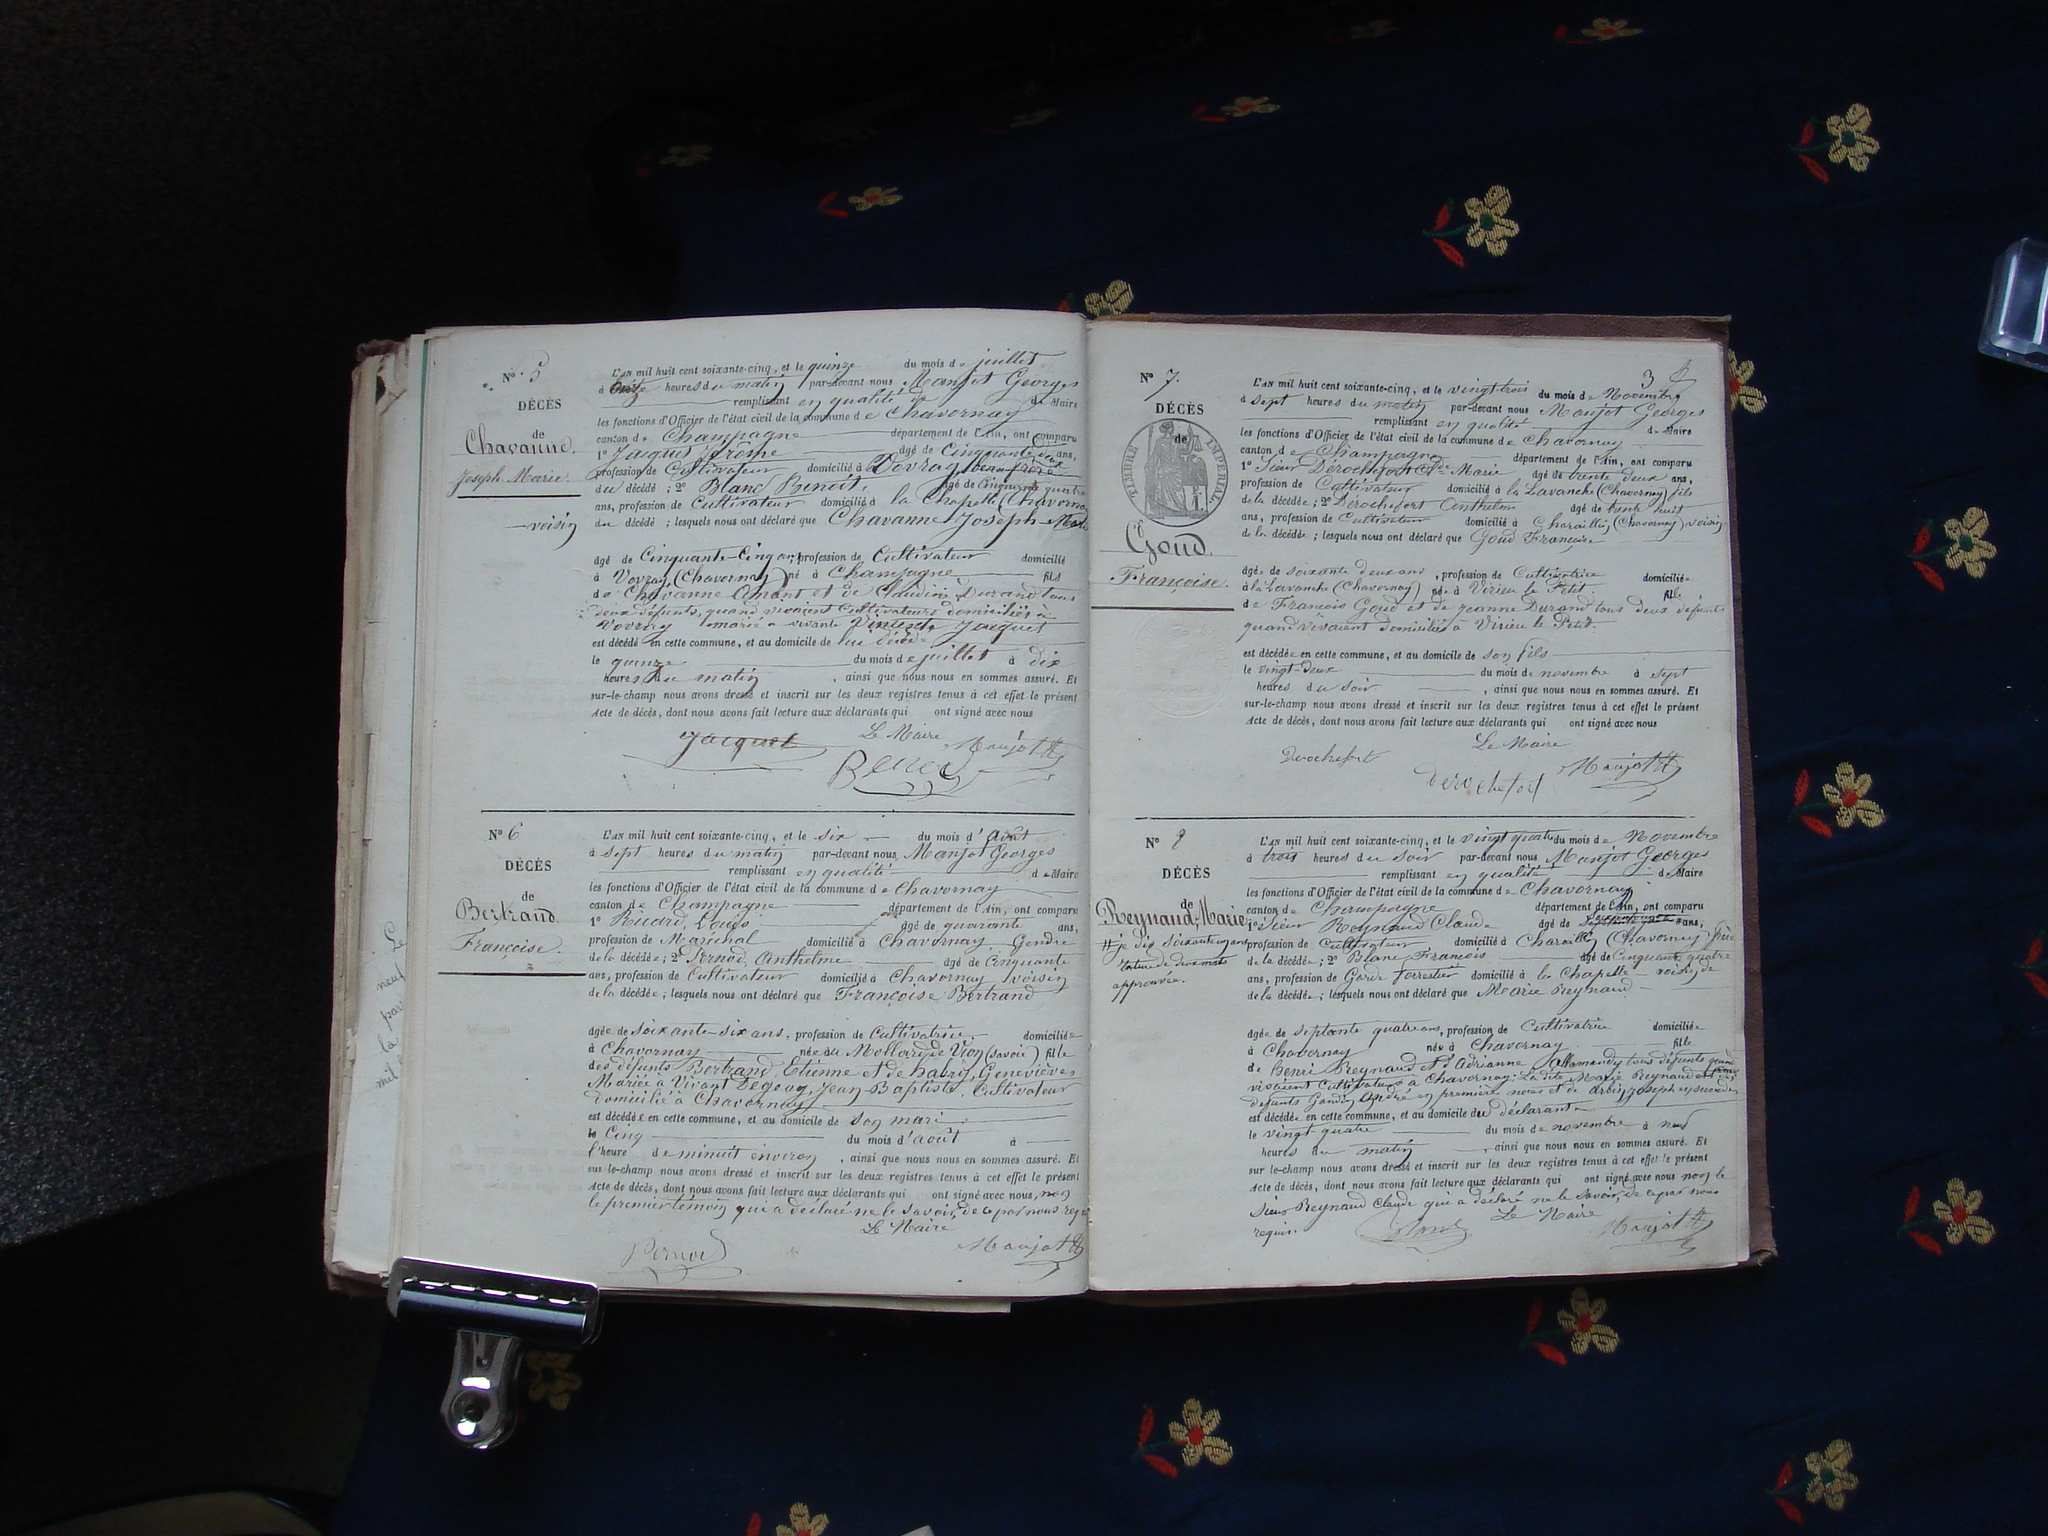 N° 5
DÉCÈS
de
Chavanne
Joseph-Marie
voisin
L'AN mil huit cent soixante-cinq, et le quinze du mois de juillet
à heures du matin par-devant nous Manjot Georges
remplissant en qualité de Maire
les fonctions d'Officier de l'état civil de la commune de Chavornay
canton de Champagne département de l'Ain, ont comparu
1° Jacquet Jérome âgé de Cinquante deux ans,
profession de Cultivateur domicilié à Vovray, beau frère
du décédé ; 2° Blanc Benoit âgé de Cinquante quatre
ans, profession de Cultivateur domicilié à la Chapelle (Chavornay
du décédé ; lesquels nous ont déclaré que Chavanne Joseph-Marie
âgé de Cinquante-Cinq ans, profession de Cultivateur domicilié
à Vovray, (Chavornay) né à Champagne fils
de Chavanne Amant et de Claudine Durand tous
deux défunts, quand vivaient Cultivateurs domiciliés à
Vovray marié à vivante Vincente Jacquet
est décédé en cette commune, et au domicile de lui décédé
le quinze du mois de juillet à dix
heures du matin, ainsi que nous nous en sommes assuré. Et
sur-le-champ nous avons dressé et inscrit sur les deux registres tenus à cet effet le présent
Acte de décès, dont nous avons fait lecture aux déclarants qui ont signé avec nous
Le Maire
Jacquet Manjot
N° 6
DÉCÈS
de
Bertrand
Françoise
L'AN mil huit cent soixante-cinq, et le six du mois d'Août
à sept heures du matin par-devant nous Manjot Georges
remplissant en qualité de Maire
les fonctions d'Officier de l'état civil de la commune de Chavornay
canton de Champagne département de l'Ain, ont comparu
1° Louis âgé de quarante ans,
profession de Maréchal domicilié à Chavornay, Gendre
de la décédée ; 2° Pernod Anthelme âgé de Cinquante
ans, profession de Cultivateur domicilié à Chavornay voisin
de la décédée ; lesquels nous ont déclaré que Françoise Bertrand
âgée de soixante-six ans, profession de Cultivatrice domiciliée
à Chavornay née au Mollard de Vion (Savoie) fille
des défunts Bertrand, Etienne et de Geneviève
Mariée à Vivant Degoug, Jean Baptiste, Cultivateur
domicilié à Chavornay
est décédée en cette commune, et au domicile de son mari
le Cinq du mois d'août à
l'heure de minuit environ, ainsi que nous nous en sommes assuré. Et
sur le-champ nous avons dressé et inscrit sur les deux registres tenus à cet effet le présent
Acte de décès, dont nous avons fait lecture aux déclarants qui ont signé avec nous, non
le premier témoin qui a déclaré ne le savoir, de ce par nous requis
Le Maire
Pernod Manjot
3
N° 7.
DÉCÈS
de
TIMBRE IMPERIAL
Goud
Françoise
L'AN mil huit cent soixante-cinq, et le vingt trois du mois de Novembre
à sept heures du matin par-devant nous Manjot Georges
remplissant en qualité de Maire
les fonctions d'Officier de l'état civil de la commune de Chavornay
canton de Champagne département de l'Ain, ont comparu
1° Sieur Derochefort Marie âgé de trente deux ans,
profession de Cultivateur domicilié à la Lavanche (Chavornay) fils
de la décédée ; 2° Derochefort Anthelme âgé de trente huit
ans, profession de Cultivateur domicilié à Charaillin (Chavornay) voisin
de la décédée ; lesquels nous ont déclaré que Goud Françoise
âgée de soixante deux ans, profession de Cultivatrice domiciliée
à la Lavanche (Chavornay) née à Virieu le Petit fille
de François Goud et de Jeanne Durand tous deux défunts
quand vivaient domiciliés à Virieu le Petit.
est décédée en cette commune, et au domicile de son fils
le vingt-deux du mois de novembre à sept
heures du soir, ainsi que nous nous en sommes assuré. Et
sur-le-champ nous avons dressé et inscrit sur les deux registres tenus à cet effet le présent
Acte de décès, dont nous avons fait lecture aux déclarants qui ont signé avec nous
Le Maire
Derochefort derochefort Manjot
N° 8
DÉCÈS
de
Reynaud, Marie
# je dis soixante
rature de deux mots
approuvée.
L'AN mil huit cent soixante-cinq, et le vingt quatre du mois de Novembre
à trois heures du soir par-devant nous Manjot Georges
remplissant en qualité de Maire
les fonctions d'Officier de l'état civil de la commune de Chavornay
canton de Champagne département de l'Ain, ont comparu
1° Sieur Reynaud Claude âgé de ans,
profession de Cultivateur domicilié à Charaillin (Chavornay) frère
de la décédée ; 2° Blanc François âgé de Cinquante quatre
ans, profession de Garde forrestier domicilié à la Chapelle voisin de
de la décédée ; lesquels nous ont déclaré que Marie Reynaud
âgée de septante quatre ans, profession de Cultivatrice domiciliée
à Chavornay née à Chavornay fille
de Henri Reynaud et d'Adrianne Allemand, tous défunts quand
vivaient Cultivateurs à Chavornay. La dite Marie Reynaud
défunts Gandin André en première noces et de Joseph en secondes
est décédée en cette commune, et au domicile du déclarant
le vingt quatre du mois de novembre à neuf
heures du matin, ainsi que nous nous en sommes assuré. Et
sur le-champ nous avons dressé et inscrit sur les deux registres tenus à cet effet le présent
Acte de décès, dont nous avons fait lecture aux déclarants qui ont signé avec nous non le
sieur Reynaud Claude qui a déclaré ne le savoir, de ce par nous
requis.
Le Maire
Manjot